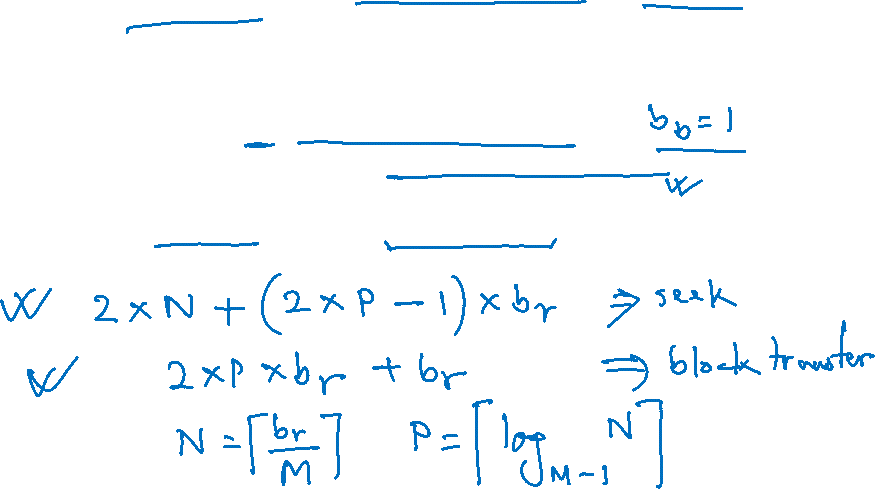 b_b = 1
2 × N + (2 × P − 1) × b_r ⇒ seek
2 × P × b_r + b_r ⇒ block transfer
N = ⌈b_r / M⌉ P = ⌈log_{M−1} N⌉